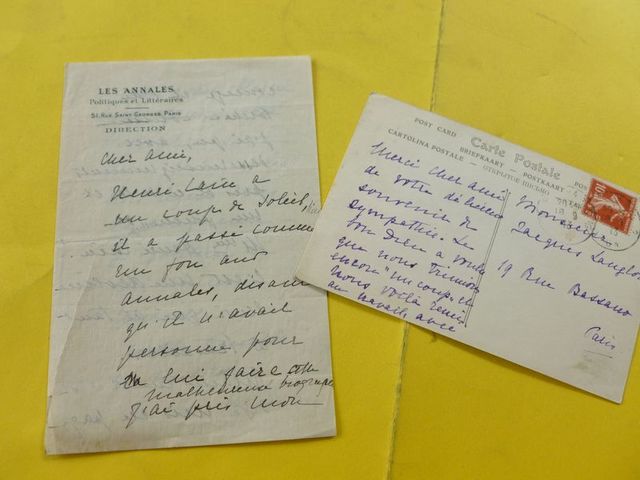 LES ANNALES
Politiques et Littéraires
51, RUE SAINT GEORGES, PARIS
DIRECTION
Cher ami,
Henri Cain a
un coup de soleil,
il a passé comme
un fou aux
annales, disant
qu'il n'avait
personne pour
lui faire cette
malheureuse biographie
J'ai pris mon
POST CARD Carte Postale
BRIEFKAART POSTKARTE
CARTOLINA POSTALE
Merci cher ami
de votre délicieux
souvenir de
sympathie. Le
bon Dieu a voulu
que nous
encore un coup, et
nous voilà
au travail avec
Monsieur
Jacques
19 Rue Bassano
Paris
10